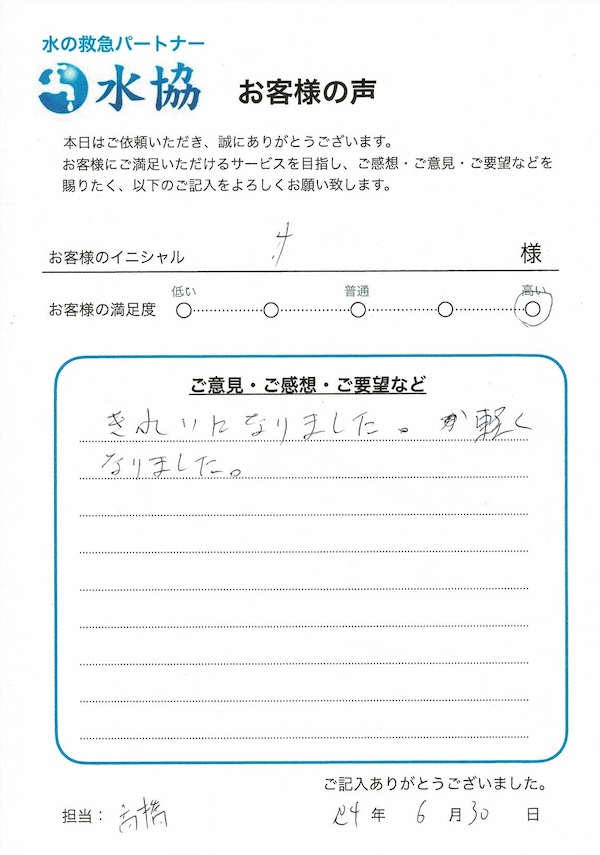 水の救急パートナー
水協 お客様の声
本日はご依頼いただき、誠にありがとうございます。
お客様にご満足いただけるサービスを目指し、ご感想・ご意見・ご要望などを
賜りたく、以下のご記入をよろしくお願い致します。
お客様のイニシャル 様
低い 普通 高い
お客様の満足度
ご意見・ご感想・ご要望など
きれいになりました。 が軽く
なりました。
ご記入ありがとうございました。
担当： 高橋 年 6 月 30 日